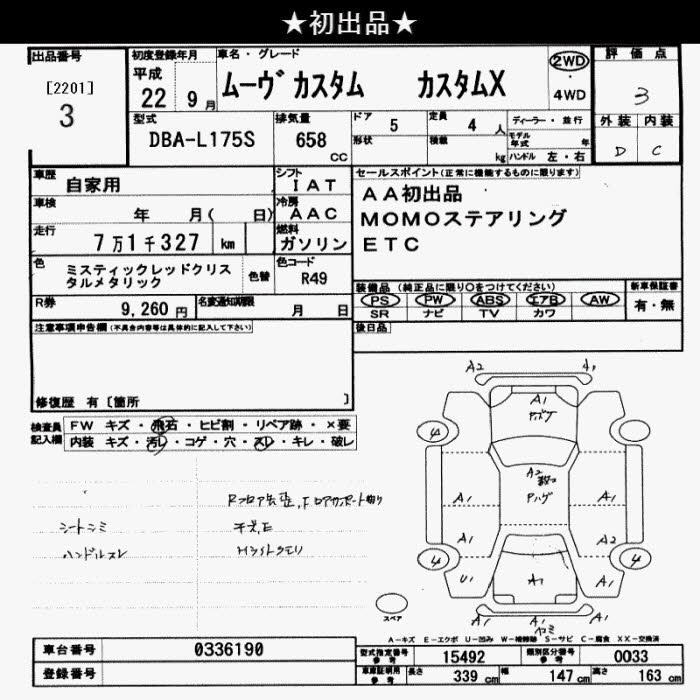 ★初出品★
出品番号
[2201]
3
初度登録年月
平成
22 9月
車名・グレード
ムーヴカスタム カスタムX
2WD
・
4WD
評価点
3
外装 内装
D C
型式
DBA-L175S
排気量
658
CC
ドア
5
定員
4人
形状
積載
kg
ディーラー・並行
モデル年式 年
ハンドル 左・右
車歴
自家用
シフト
IAT
車検
年 月( 日)
冷房
AAC
走行
7万1千327 km
燃料
ガソリン
色
ミスティックレッドクリスタルメタリック
色替
色コード
R49
R券
9,260円
名変通知期限
月 日
セールスポイント(正常に機能するものに限ります)
AA初出品
MOMOステアリング
ETC
装備品 (純正品に限り○をつけてください)
PS PW ABS エアB AW
SR ナビ TV カワ
新車保証書
有・無
後日品
注意事項申告欄(不具合内容等は具体的に記入して下さい)
修復歴 有〔箇所 〕
検査員記入欄
FW キズ・飛石・ヒビ割・リペア跡・×要
内装 キズ・汚レ・コゲ・穴・スレ・キレ・破レ
シートシミ
ハンドルスレ
A2
A1
A1
4
A2
A1
A1
A1
A2
4
4
U1
A1
A1
A1
A1
スペア
A-キズ E-エクボ U-凹み W-補修跡 S-サビ C-腐食 XX-交換済
車台番号
0336190
登録番号
型式指定番号
参考
15492
類別区分番号
参考
0033
車庫証明用
参考
長さ
339 cm
幅
147 cm
高さ
163 cm